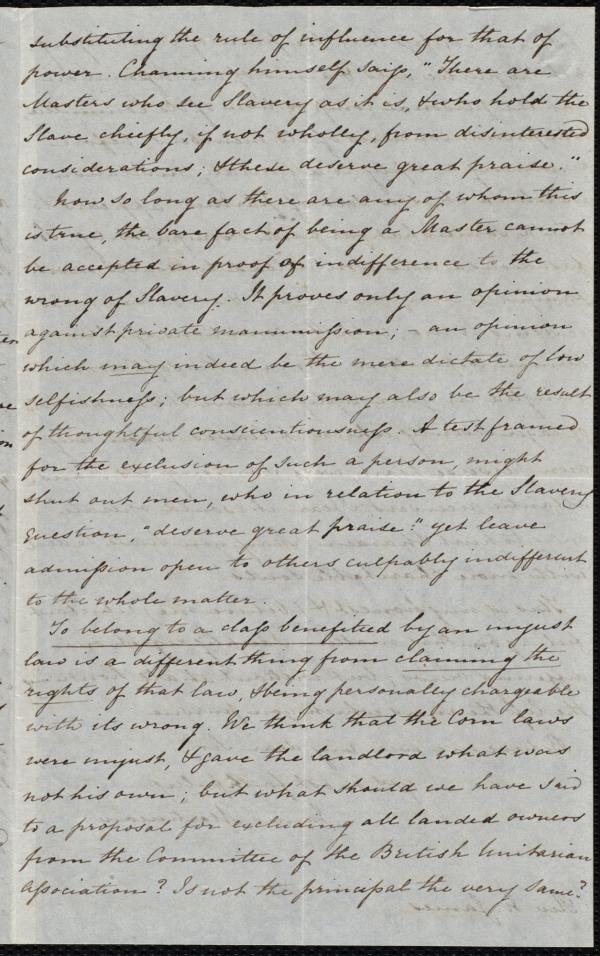 substituting the rule of influence for that of
power. Channing himself says, "There are
Masters who see Slavery as it is, & who hold the
Slave chiefly, if not wholly, from disinterested
considerations; & these deserve great praise."
Now so long as there are any of whom this
is true, the bare fact of being a Master cannot
be accepted in proof of indifference to the
wrong of Slavery. It proves only an opinion
against private manumission; - an opinion
which may indeed be the mere dictate of low
selfishness; but which may also be the result
of thoughtful conscientiousness. A test framed
for the exclusion of such a person, might
shut out men, who in relation to the Slavery
Question, "deserve great praise:" yet leave
admission open to others culpably indifferent
to the whole matter.
To belong to a class benefitied by an unjust
law is a different thing from claiming the
rights of that law, & being personally chargeable
with its wrong. We think that the Corn laws
were unjust, & gave the landlord what was
not his own; but what should we have said
to a proposal for excluding all landed owners
from the Committee of the British Unitarian
Association? Is not the principal the very same?